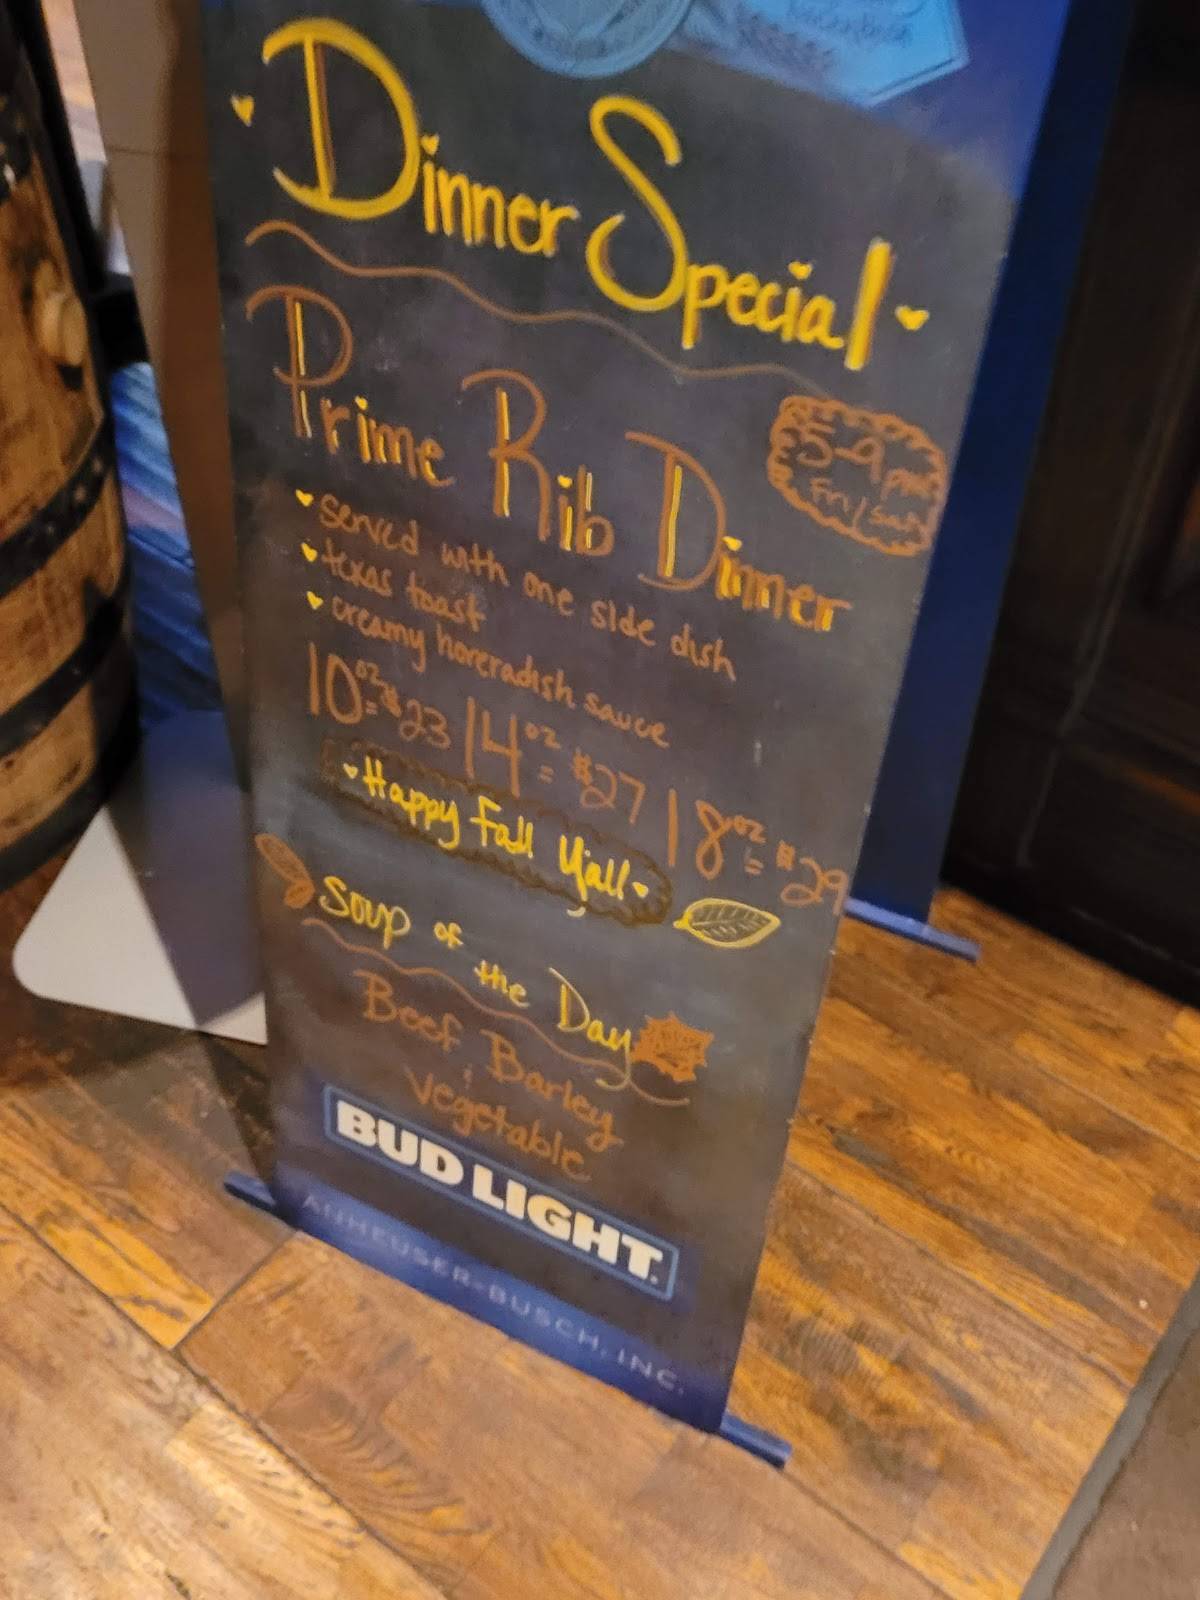 Dinner Special
Prime Rib Dinner
5-9 pm
Fri/Sat
served with one side dish
texas toast
creamy horeradish sauce
10oz = $23 14oz = $27 18oz = $29
Happy Fall Y'all
Soup of the Day
Beef Barley
Vegetable
BUD LIGHT
ANHEUSER-BUSCH, INC.